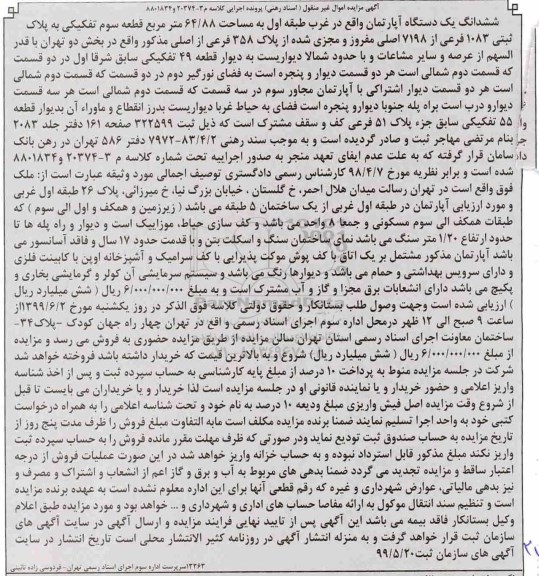 آگهی مزایده اموال غیر منقول (اسناد رهنی) پرونده اجرایی کلاسه م۳-۲۰۳۷۴ و ۸۸۰۱۸۳۴
ششدانگ یک دستگاه آپارتمان واقع در غرب طبقه اول به مساحت ۶۴/۸۸ متر مربع قطعه سوم تفکیکی به پلاک
ثبتی ۱۰۸۳ فرعی از ۷۱۹۸ اصلی مفروز و مجزی شده از پلاک ۳۵۸ فرعی از اصلی مذکور واقع در بخش دو تهران با قدر
السهم از عرصه و سایر مشاعات و با حدود شمالا دیواریست به دیوار قطعه ۴۹ تفکیکی سابق شرقا اول در دو قسمت
که قسمت دوم شمالی است هر دو قسمت دیوار و پنجره است به فضای نورگیر دوم در دو قسمت که قسمت دوم شمالی
است هر دو قسمت دیوار اشتراکی با آپارتمان مجاور سوم در سه قسمت که قسمت دوم شمالی است هر سه قسمت
دیوارو درب است براه پله جنوبا دیوارو پنجره است فضای به حیاط غربا دیواریست بدرز انقطاع و ماوراء آن بدیوار قطعه
۵۵ تفکیکی سابق جزء پلاک ۵۱ فرعی کف و سقف مشترک است که ذیل ثبت ۳۲۲۵۹۹ صفحه ۱۶۱ دفتر جلد ۲۰۸۳
بنام مرتضی مهاجر ثبت و صادر گردیده است و به موجب سند رهنی ۸۳/۴/۲-۷۹۷۲ دفتر ۵۸۶ تهران در رهن بانک
سامان قرار گرفته که به علت عدم ایفای تعهد منجر به صدور اجراییه تحت شماره کلاسه م ۳-۲۰۳۷۴ و۸۸۰۱۸۳۴
شده است و برابر نظریه مورخ ۹۸/۴/۷ کارشناس رسمی دادگستری توصیف اجمالی مورد وثیقه عبارت است از: ملک
فوق واقع است در تهران رسالت میدان هلال احمر، خ گلستان ، خیابان بزرگ نیا، خ میرزائی، پلاک ۲۶ طبقه اول غربی
و مورد ارزیابی آپارتمان در طبقه اول غربی از یک ساختمان ۵ طبقه می باشد ( زیرزمین و همکف و اول الی سوم ) که
طبقات همکف الی سوم مسکونی و جمعا ۸ واحد می باشد و کف سازی حیاط، موزاییک است و دیوار و راه پله ها تا
حدود ارتفاع ۱/۲۰ متر سنگ می باشد نمای ساختمان سنگ و اسکلت بتن و با قدمت حدود ۱۷ سال و فاقد آسانسور می
باشد آپارتمان مذکور مشتمل بر یک اتاق با کف پوش موکت پذیرایی با کف سرامیک و آشپزخانه اوپن با کابینت فلزی
و دارای سرویس بهداشتی و حمام می باشد و دیوارها رنگ می باشد و سیستم سرمایشی آن کولر و گرمایشی بخاری و
پکیج می باشد دارای انشعابات برق مجزا و گاز و آب مشترک است و به مبلغ ۶/۰۰۰/۰۰۰/۰۰۰ ریال ( شش میلیارد ریال
) ارزیابی شده است وجهت وصول طلب بستانکار و حقوق دولتی کلاسه فوق الذکر در روز یکشنبه مورخ ۱۳۹۹/۶/۲از
ساعت ۹ صبح الی ۱۲ ظهر درمحل اداره سوم اجرای اسناد رسمی واقع در تهران چهار راه جهان کودک -پلاک۳۴-
ساختمان معاونت اجرای اسناد رسمی استان تهران سالن مزایده از طریق مزایده حضوری به فروش می رسد و مزایده
از مبلغ ۶/۰۰۰/۰۰۰/۰۰۰ ریال ( شش میلیارد ریال) شروع و به بالاترین قیمت که خریدار داشته باشد فروخته خواهد شد
شرکت در جلسه مزایده منوط به پرداخت ۱۰ درصد از مبلغ پایه کارشناسی به حساب سپرده ثبت و پس از اخذ شناسه
واریز اعلامی و حضور خریدار و یا نماینده قانونی او در جلسه مزایده است لذا خریدار و یا خریداران می بایست تا قبل
از شروع وقت مزایده اصل فیش واریزی مبلغ ودیعه ۱۰ درصد به نام خود و تحت شناسه اعلامی را به همراه درخواست
کتبی خود به واحد اجرا تسلیم نمایند ضمنا برنده مزایده مکلف است مابه التفاوت مبلغ فروش را ظرف مدت پنج روز از
تاریخ مزایده به حساب صندوق ثبت تودیع نماید ودر صورتی که ظرف مهلت مقرر مانده فروش را به حساب سپرده ثبت
واریز نکند مبلغ مذکور قابل استرداد نبوده و به حساب خزانه واریز خواهد شد در این صورت عملیات فروش از درجه
اعتبار ساقط و مزایده تجدید می گردد ضمنا بدهی های مربوط به آب و برق و گاز اعم از انشعاب و اشتراک و مصرف و
نیز بدهی مالیاتی، عوارض شهرداری و غیره که رقم قطعی آنها برای این اداره معلوم نشده است به عهده برنده مزایده
است و تنظیم سند انتقال موکول به ارائه مفاصا حساب های اداری و شهرداری و ... خواهد بود و مورد مزایده طبق اعلام
وکیل بستانکار فاقد بیمه می باشد این آگهی پس از تایید نهایی فرایند مزایده و ارسال آگهی در سایت آگهی های
سازمان ثبت قرار خواهد گرفت و به منزله انتشار آگهی در روزنامه کثیر الانتشار محلی است تاریخ انتشار در سایت
آگهی های سازمان ثبت ۹۹/۵/۲۰
۱۳۲۶۳سرپرست اداره سوم اجرای اسناد رسمی تهران - فردوسی زاده نائینی